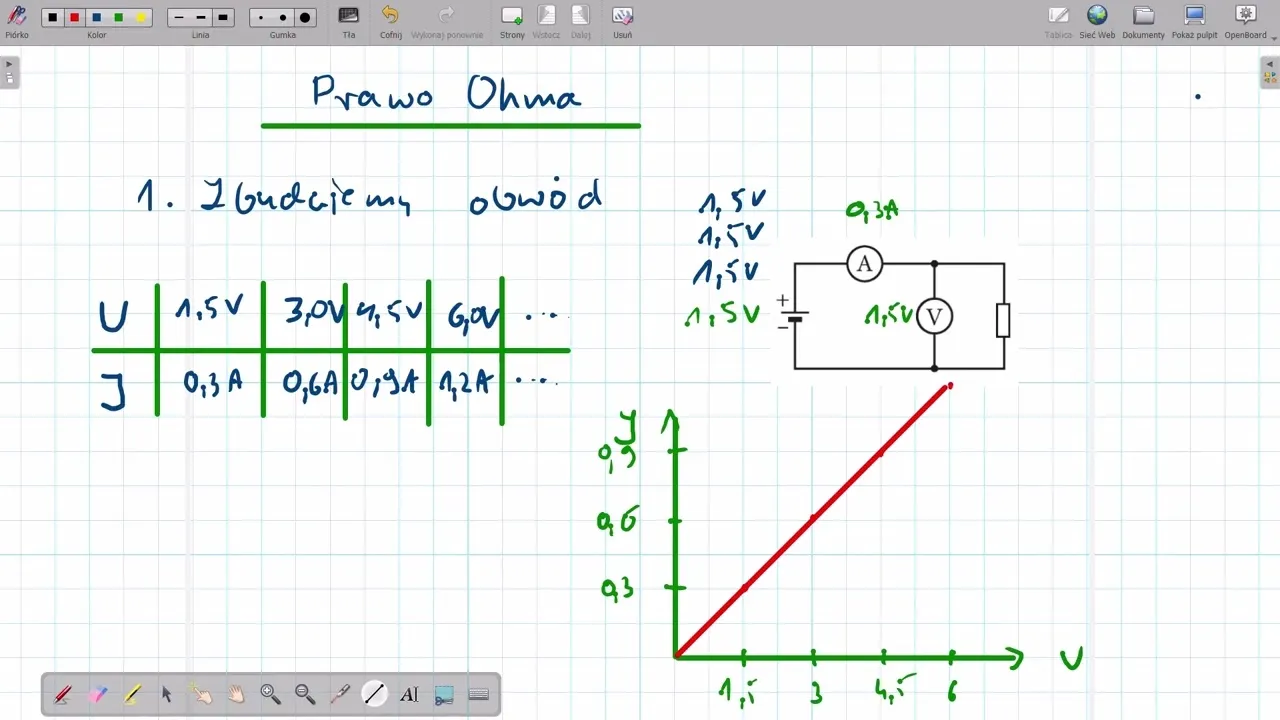 Piórko Kolor Linia Gumka Tła Cofnij Wykonaj ponownie Strony Wstecz Dalej Usuń Tablica Sieć Web Dokumenty Pokaż pulpit OpenBoard
Prawo Ohma
1. Zbudujemy obwód
U 1,5V 3,0V 4,5V 6,0V ...
I 0,3A 0,6A 0,9A 1,2A ...
1,5V
1,5V
1,5V
1,5V
0,3A
A
+
−
1,5V V
I
0,9
0,6
0,3
U
1,5 3 4,5 6
AI